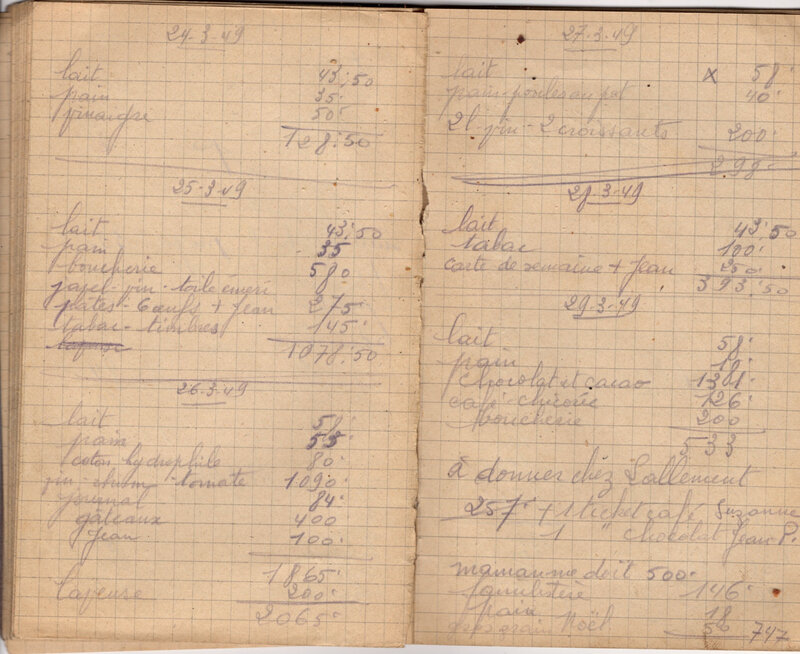 24-3-49
lait 43,50
pain 35
vinaigre 50
128.50
25-3-49
lait 43,50
pain 35
boucherie 580
vin - toile émeri
pâtes - 6 œufs + Jean 275
tabac - timbres 145
1078.50
26-3-49
lait 58
pain 55
coton hydrophile 80
vin - rhum - tomate 1090
journal 84
gâteaux 400
Jean 100
1865
laveuse 200
2065
27-3-49
lait x 58
pain 40
2 l. vin - 2 croissants 200
298
28-3-49
lait 43,50
tabac 100
carte de semaine + Jean 250
393.50
29-3-49
lait 58
pain 18
Chocolat et cacao 131
café chicorée 126
boucherie 200
533
à donner chez Lallement
257 + 1 ticket café Suzanne
1 " chocolat Jean P.
maman me doit 500
familistère 146
pain 18
Noël 50 747